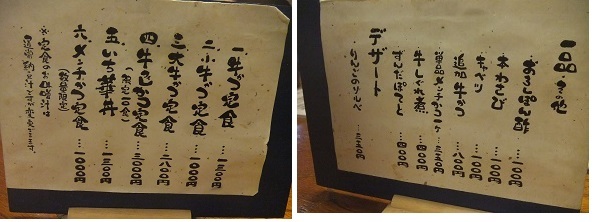 一.牛かつ定食 …一三〇〇円
二.小牛かつ定食 …一〇〇〇円
三.大牛かつ定食 …一八〇〇円
四.牛ヒレかつ定食 …二〇〇〇円
(限定二〇食)
五.いち華丼 …一三〇〇円
六.メンチかつ定食 …一〇〇〇円
(数量限定)
※定食のお味噌汁は
一品その他
おろしぽん酢 …一〇〇円
本わさび …一〇〇円
追加牛かつ …八〇〇円
単品メンチかつ一ヶ …三五〇円
牛しぐれ煮 …四〇〇円
ずんだぽてと …四〇〇円
デザート
りんごのソルベ …三五〇円